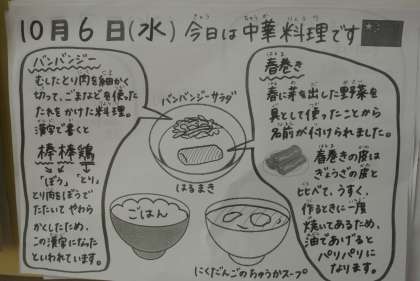 10月6日(水) 今日は中華料理です
バンバンジー
むしたとり肉を細かく
切って、ごまなどを使った
たれをかけた料理。
漢字で書くと
棒棒鶏
「ぼう」「とり」
とり肉をぼうで
たたいて やわら
かくしたため、
この漢字になった
といわれています。
バンバンジーサラダ
はるまき
ごはん
にくだんごのちゅうかスープ
春巻き
春に芽を出した野菜を
具として使ったことから
名前が付けられました。
春巻きの皮は
ぎょうざの皮と
比べて、うすく、
作るときに一度
焼いてあるため、
油であげると
パリパリに
なります。